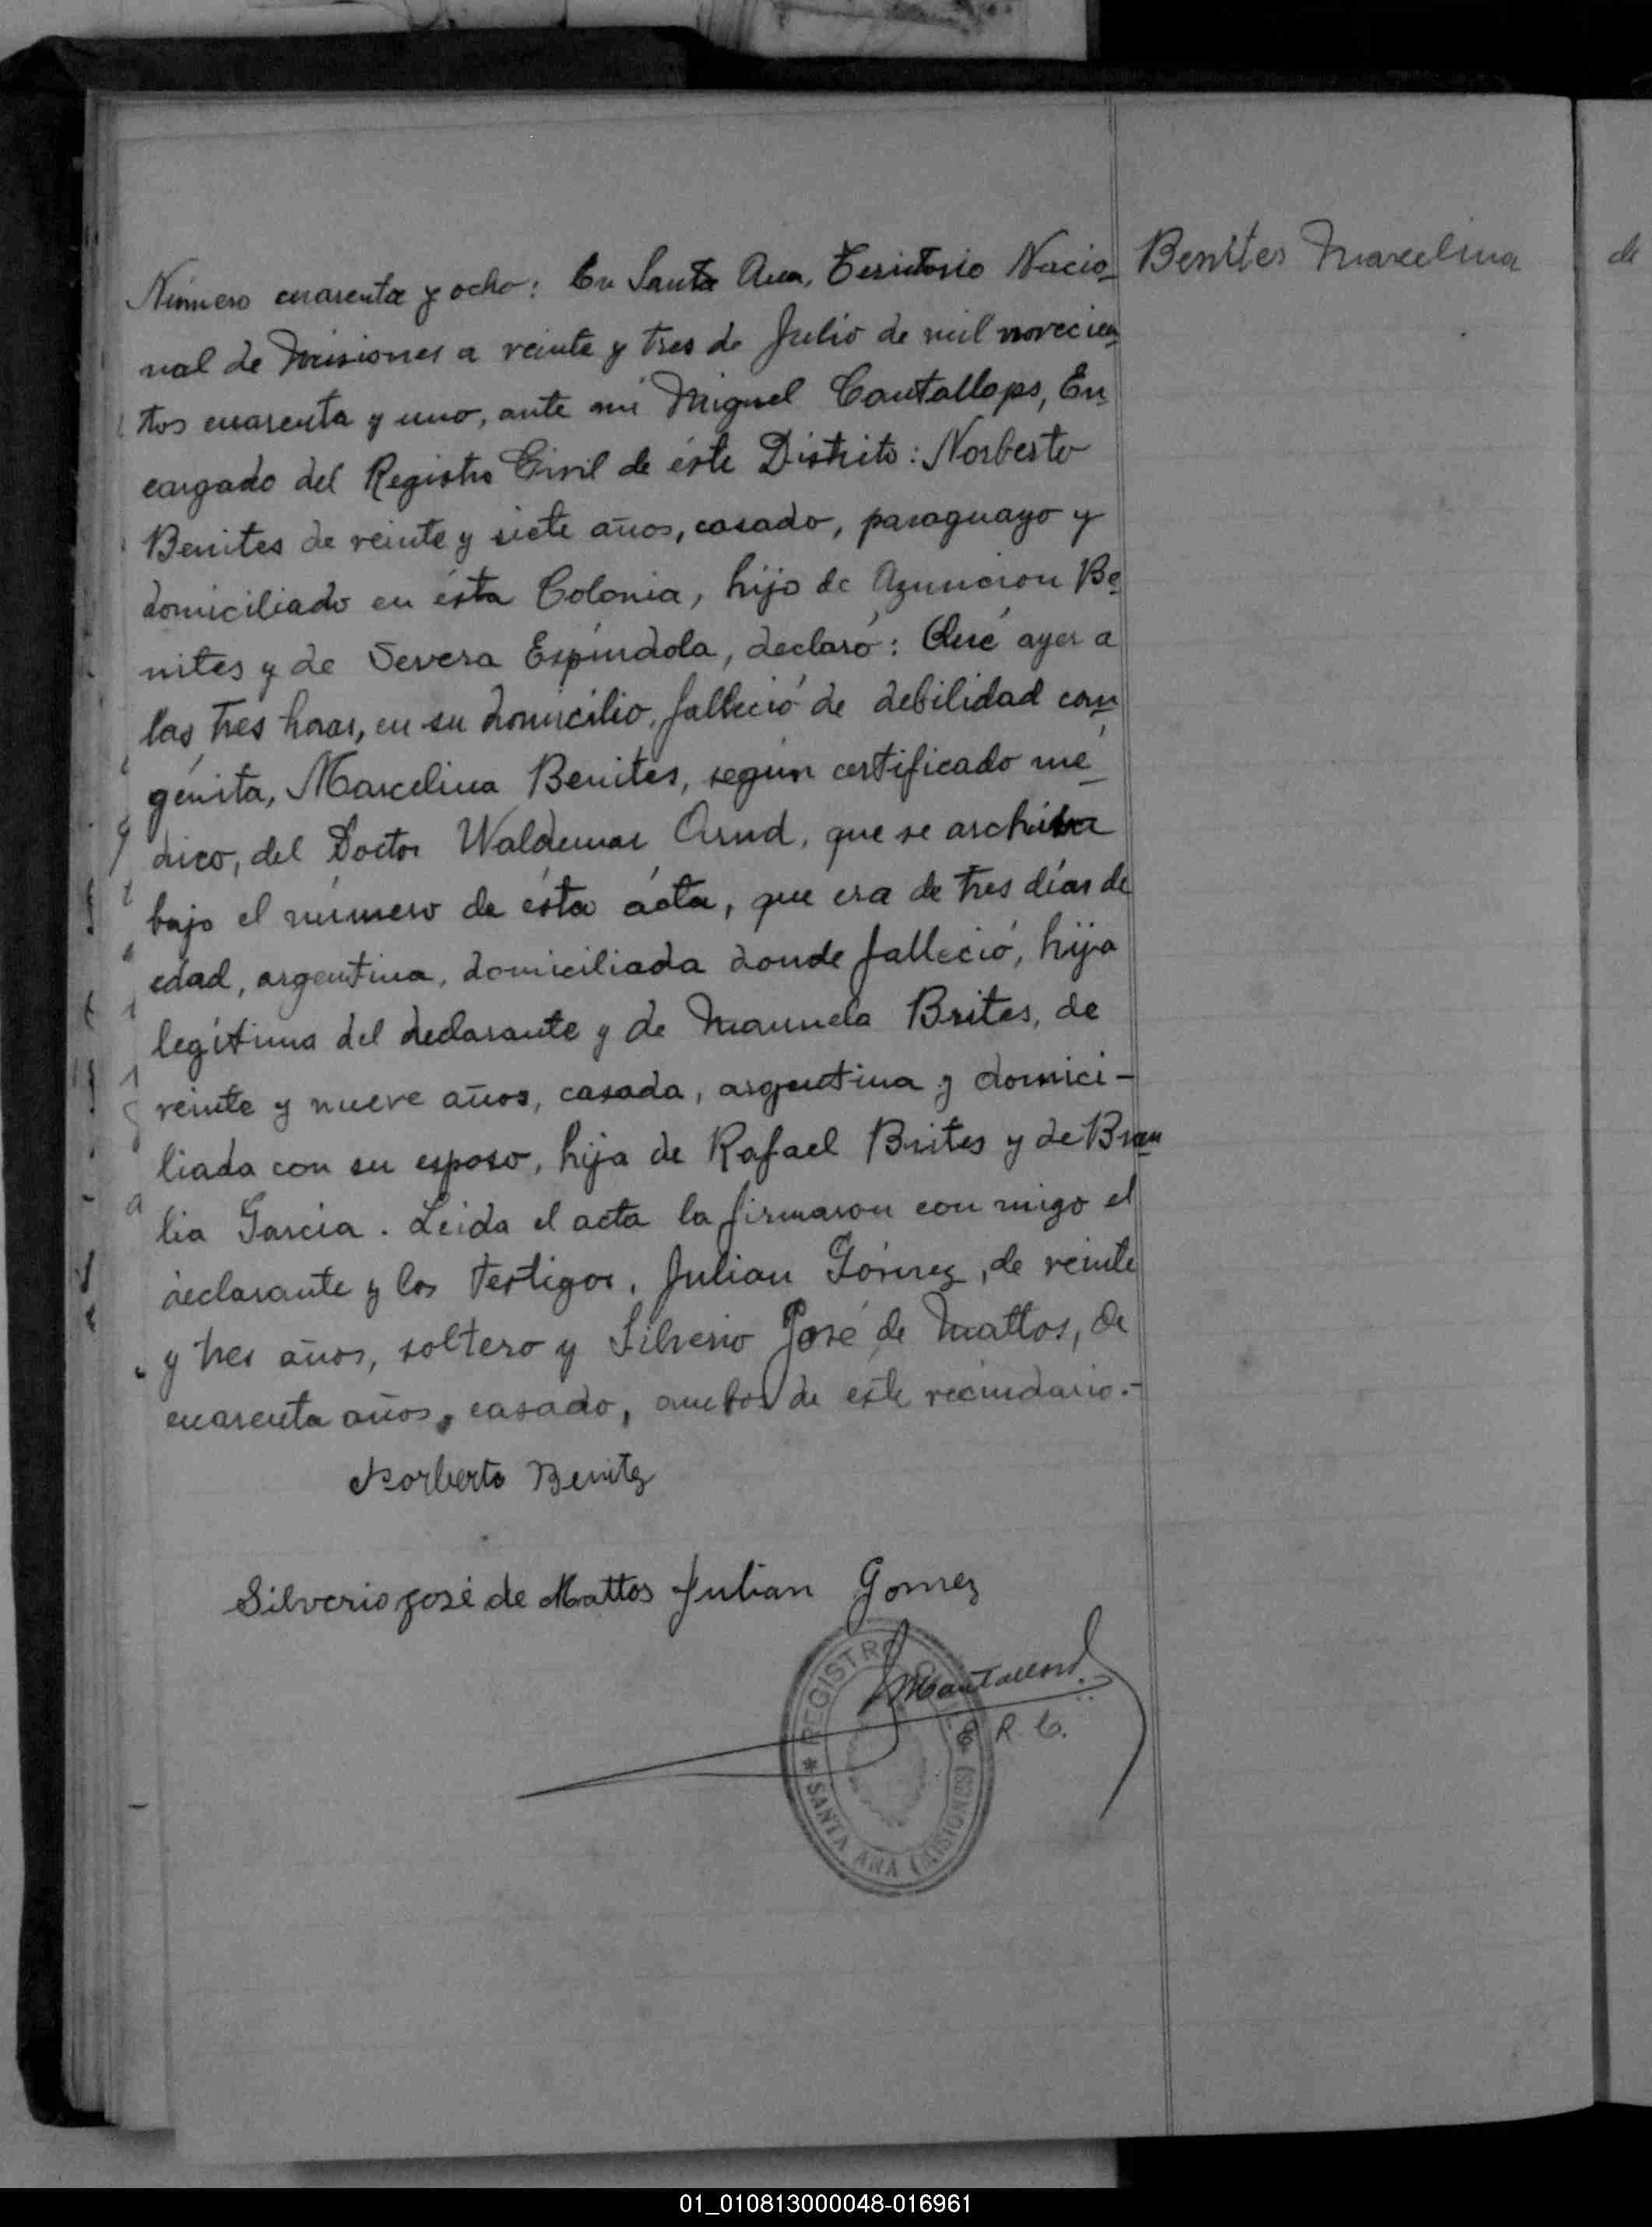 Benites Marcelina
Número cuarenta y ocho: En Santa Ana, Territorio Nacio-
nal de Misiones a veinte y tres de Julio de mil novecien
tos cuarenta y uno, ante mi Miguel Cantallops, En
cargado del Registro Civil de éste Distrito: Norberto
Benites de veinte y siete años, casado, paraguayo y
domiciliado en ésta Colonia, hijo de Azuncion Be
nites y de Severa Espíndola, declaró: Qué ayer a
las tres horas, en su domicilio, falleció de debilidad con
génita, Marcelina Benites, según certificado mé
dico, del Doctor Waldemar Arnd, que se archiva
bajo el número de ésta ácta, que era de tres días de
edad, argentina, domiciliada donde falleció, hija
legítima del declarante y de Manuela Brites, de
veinte y nueve años, casada, argentina y domici-
liada con su esposo, hija de Rafael Brites y de Brau
lia Garcia. Leida el acta la firmaron con migo el
declarante y los testigos, Julian Gómez, de veinte
y tres años, soltero y Silverio José de Mattos, de
cuarenta años, casado, ambos de este vecindario.-
Norberto Benitez
Silverio José de Mattos Julian Gomez
MCantallops
E. R. C.
REGISTRO CIVIL
* SANTA ANA (MISIONES)
de
01_010813000048-016961